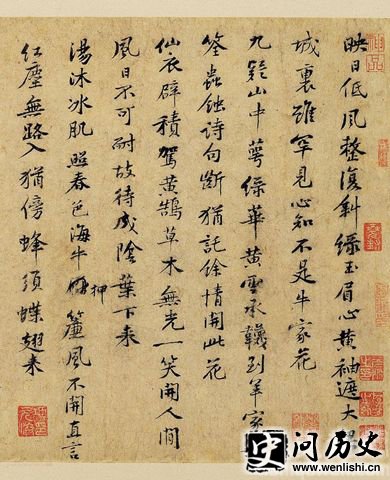 映日低風整復斜綠玉眉心黃袖遮大梁
城裏雖罕見心知不是牛家花
九疑山中萼綠華黃雲承韈到羊家
筌蟲蝕詩句斷猶託餘情開此花
仙衣襞積駕黃鵠草木無光一笑開人間
風日不可耐故待成陰葉下來
湯沐冰肌照春色海牛押簾風不開直言
紅塵無路入猶傍蜂須蝶翅來
问历史
www.wenlishi.cn